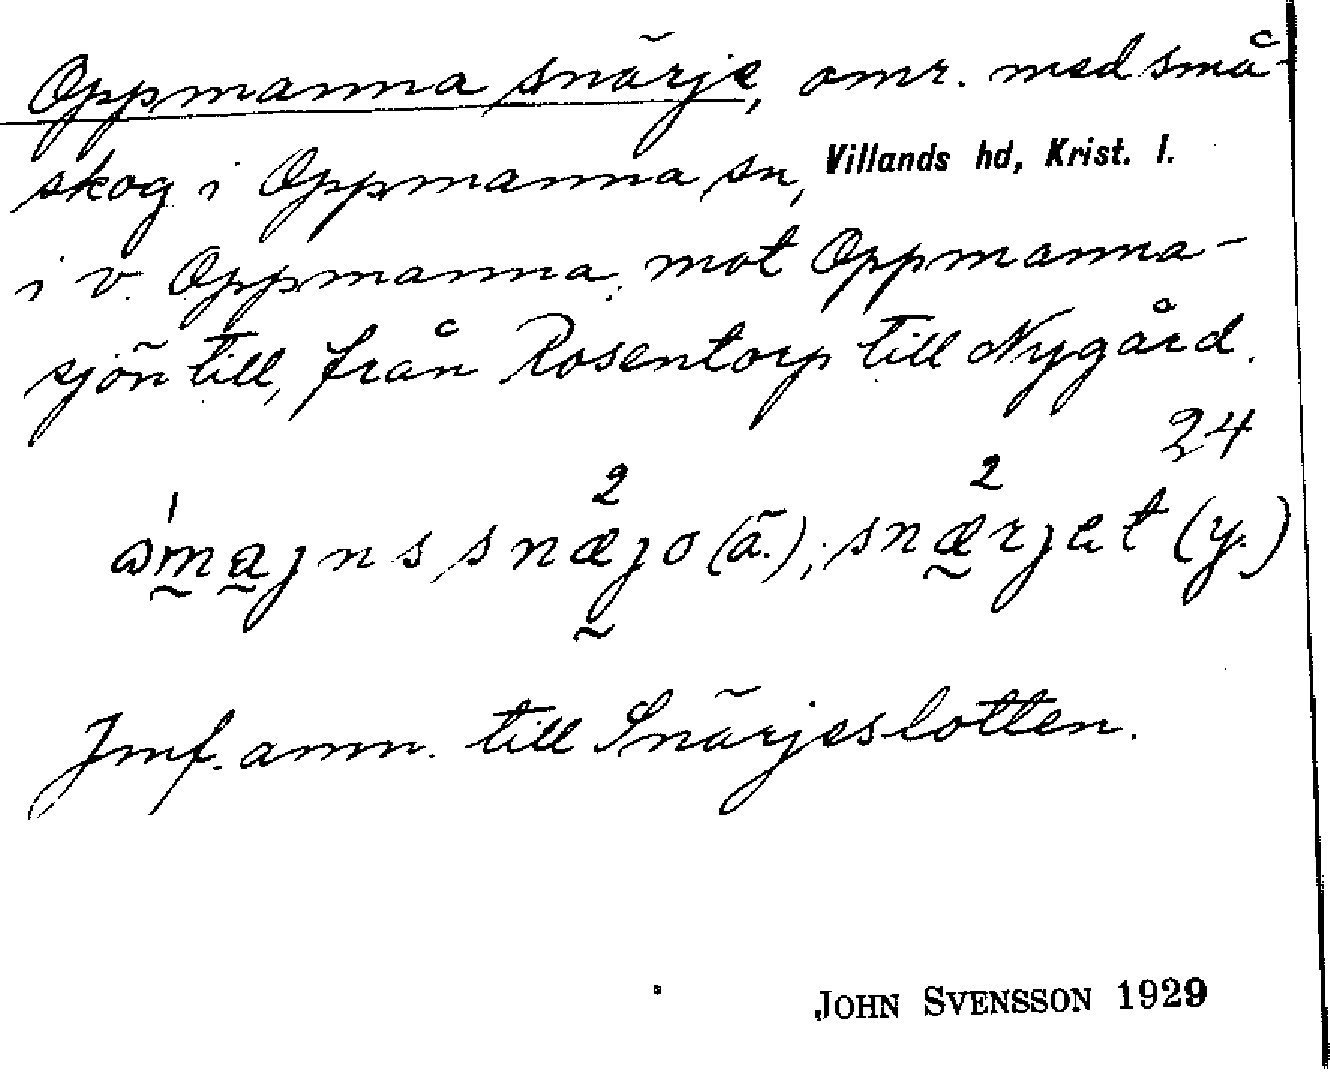 Oppmanna snärje, omr. med små-
skog i Oppmanna sn, Villands hd, Krist. l.
i v. Oppmanna, mot Oppmanna-
sjön till, från Rosentorp till Nygård.
24
2 2
(ä.); snærjet (y.)
Jmf. anm. till Snärjeslotten.
JOHN SVENSSON 1929